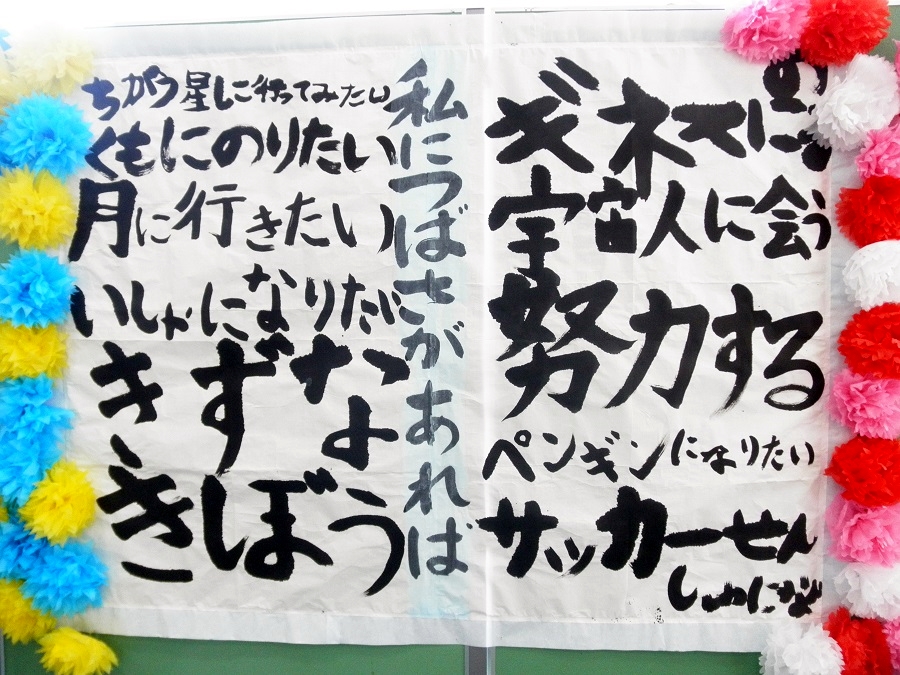 私につばさがあれば
ちがう星に行ってみたい
くもにのりたい
月に行きたい
いしゃになりたい
きずな
きぼう
ギネスに
宇宙人に会う
努力する
ペンギンになりたい
サッカーせん
しゅにな